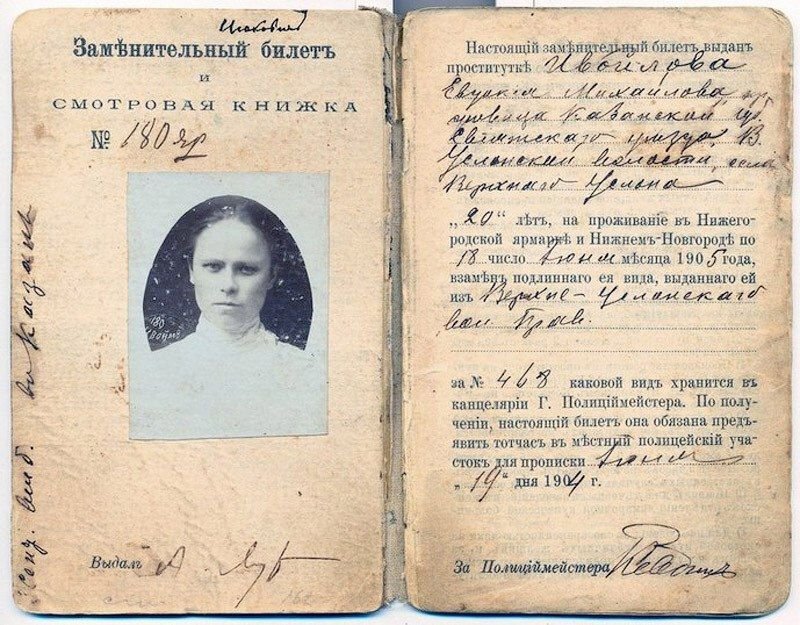 Замѣнительный билетъ
и
СМОТРОВАЯ КНИЖКА
№ 180 яр
180
Выдалъ
въ Казань
Настоящій замѣнительный билетъ выданъ
проституткѣ Ивойлова
Евдокія Михайлова,
Казанской губ.
Свіяжскаго уѣзда, В.
Услонской волости, села
Верхняго Услона
„20“ лѣтъ, на проживаніе въ Нижего-
родской ярмаркѣ и Нижнемъ-Новгородѣ по
18 число іюня мѣсяца 1905 года,
взамѣнъ подлиннаго ея вида, выданнаго ей
изъ Верхне-Услонскаго
вол. Прав.
за № 468 каковой видъ хранится въ
канцеляріи Г. Полиціймейстера. По полу-
ченіи, настоящій билетъ она обязана предъ-
явить тотчасъ въ мѣстный полицейскій уча-
стокъ для прописки іюня
„19“ дня 1904 г.
За Полиціймейстера